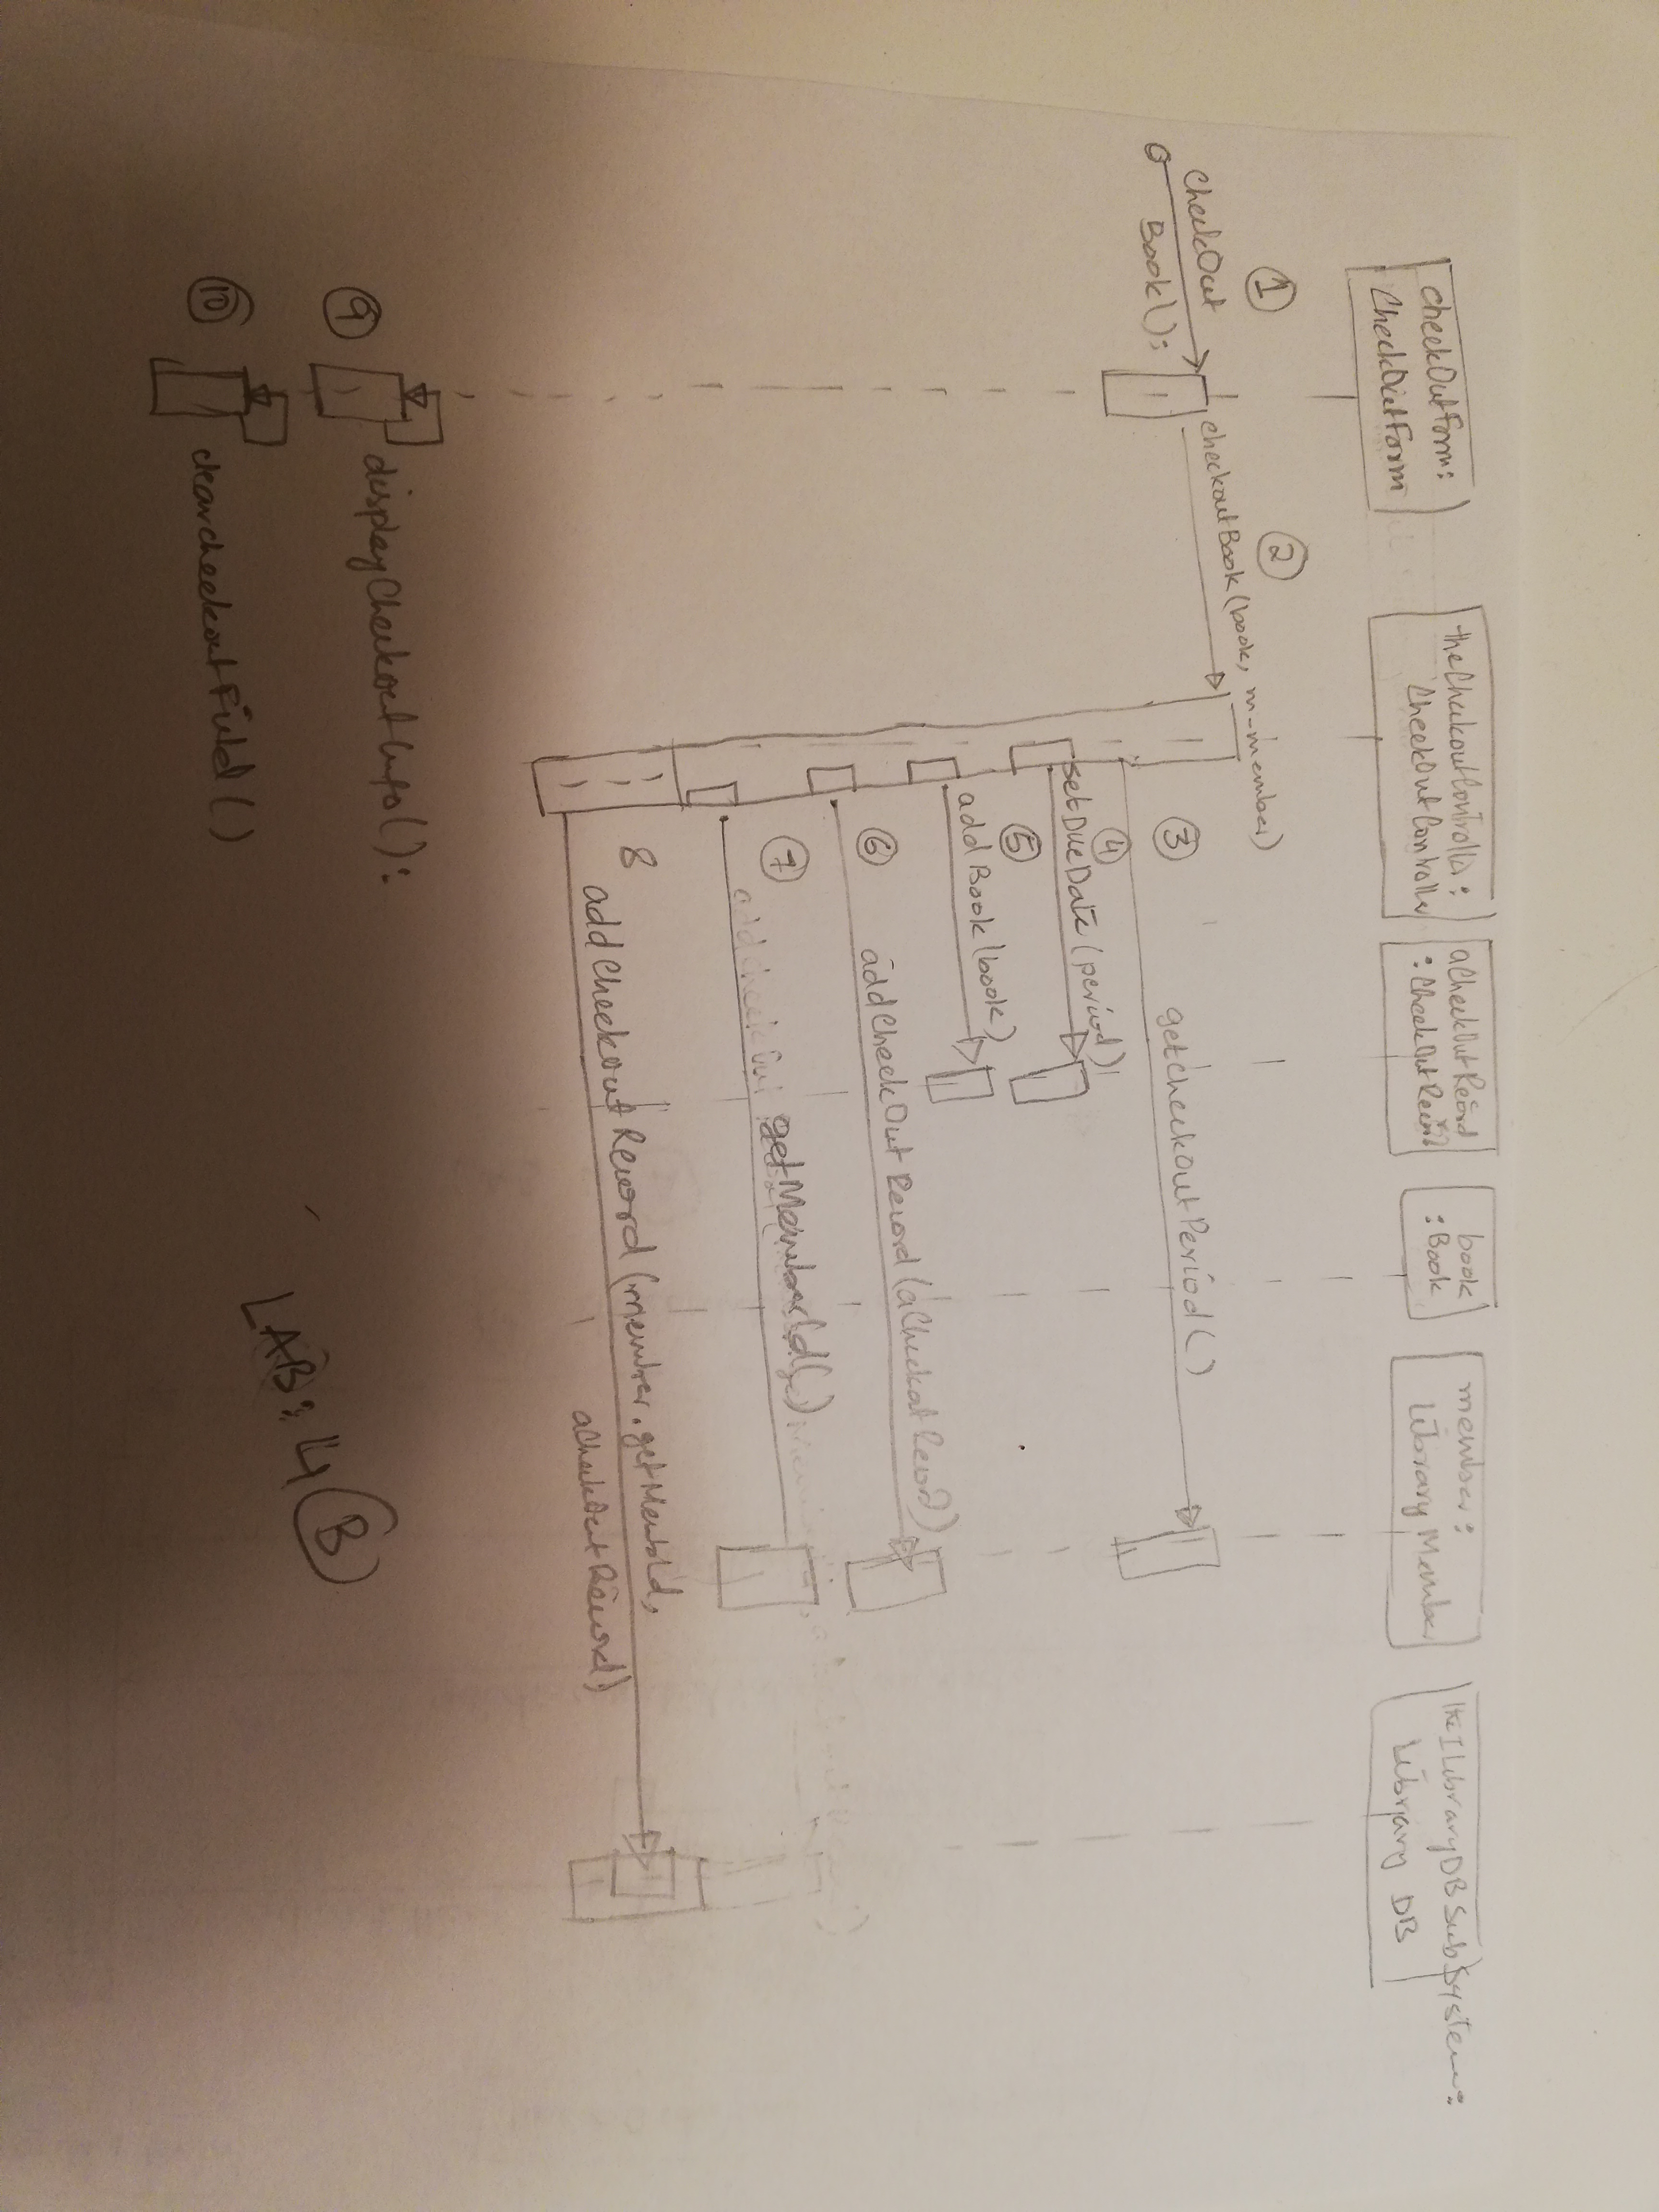 checkOutForm:
CheckOutForm
theCheckoutController:
CheckOutController
aCheckOutRecord
:CheckOutRecord
book
:Book
member:
Library Member
the ILibraryDBSubSystem:
Library DB
①
②
checkOut
Book();
checkoutBook(book, m-member)
③
getcheckoutPeriod()
④
setDueDate(period)
⑤
addBook(book)
⑥
addCheckOutRecord(aCheckoutRecord)
⑦
getMemberId()
8
addCheckoutRecord(member.getMembId,
aCheckOutRecord)
⑨
displayCheckoutInfo():
⑩
clearcheckoutField()
LAB: 4 B